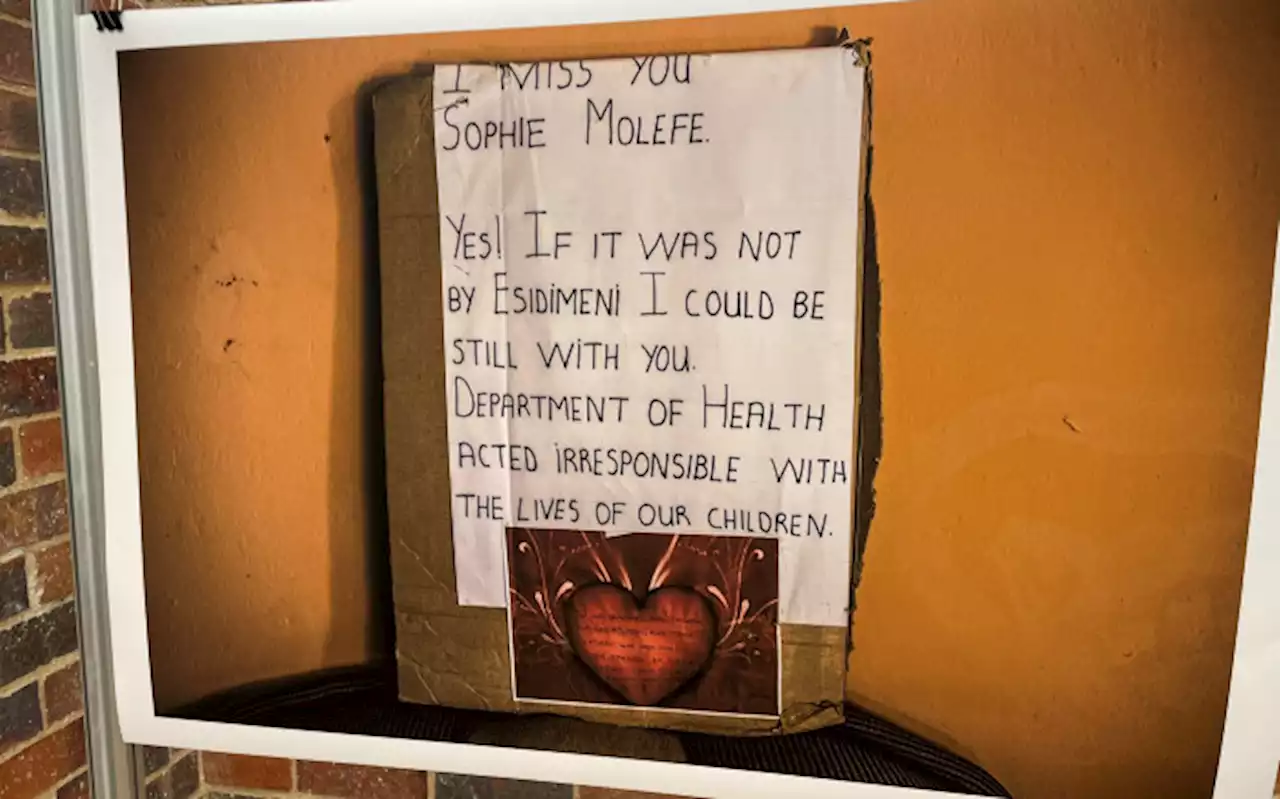 I MISS YOU
SOPHIE MOLEFE.
YES! IF IT WAS NOT
BY ESIDIMENI I COULD BE
STILL WITH YOU.
DEPARTMENT OF HEALTH
ACTED IRRESPONSIBLE WITH
THE LIVES OF OUR CHILDREN.